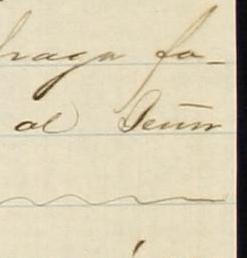 haga fa-
al Señor